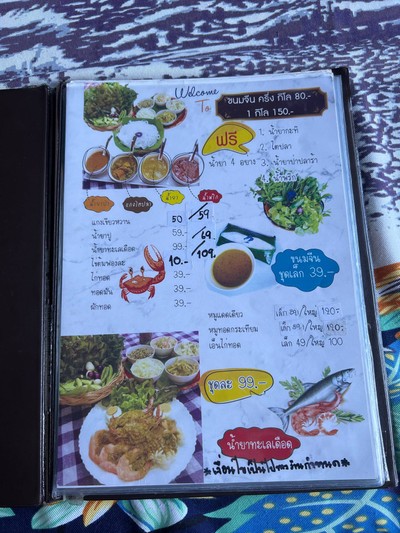 Welcome
To
ขนมจีน ครึ่ง กิโล 80.-
1 กิโล 150.-
ฟรี
น้ำยา 4 อย่าง
1. น้ำยากะทิ
2. ไตปลา
3. น้ำยาปลาร้า
น้ำพริก
แกงไตปลา
แกงเขียวหวาน 50 / 59
น้ำยาปู 59.- / 69
น้ำยาทะเลเดือด 99.- / 109
ไข่ต้มฟองละ 10.-
ไก่ทอด 39.-
ทอดมัน 39.-
ผักทอด 39.-
ขนมจีน
ชุดเล็ก 39.-
หมูแดดเดียว เล็ก /ใหญ่
หมูทอดกระเทียม เล็ก /ใหญ่
เอ็นไก่ทอด เล็ก 49/ใหญ่ 100
ชุดละ 99.-
น้ำยาทะเลเดือด